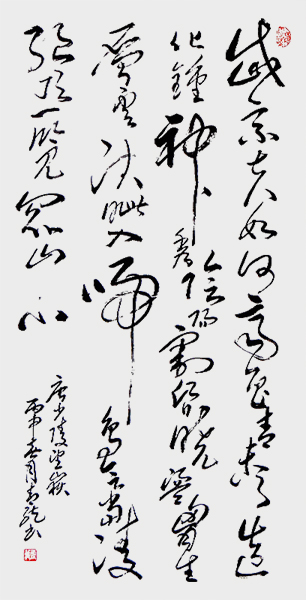 岱宗夫如何齊魯青未了造
化鍾神秀陰陽割昏曉盪胷生
層雲決眦入歸鳥會當凌
絕頂一覽眾山小
唐少陵望嶽
丙申春月書